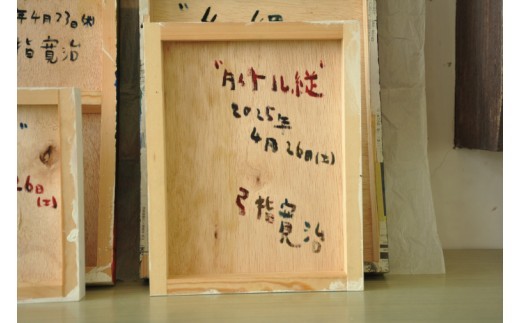 年4月23日(水)
指寛治
6日
(土)
"タイトル縦"
2025年
4月26日(土)
弓指寛治